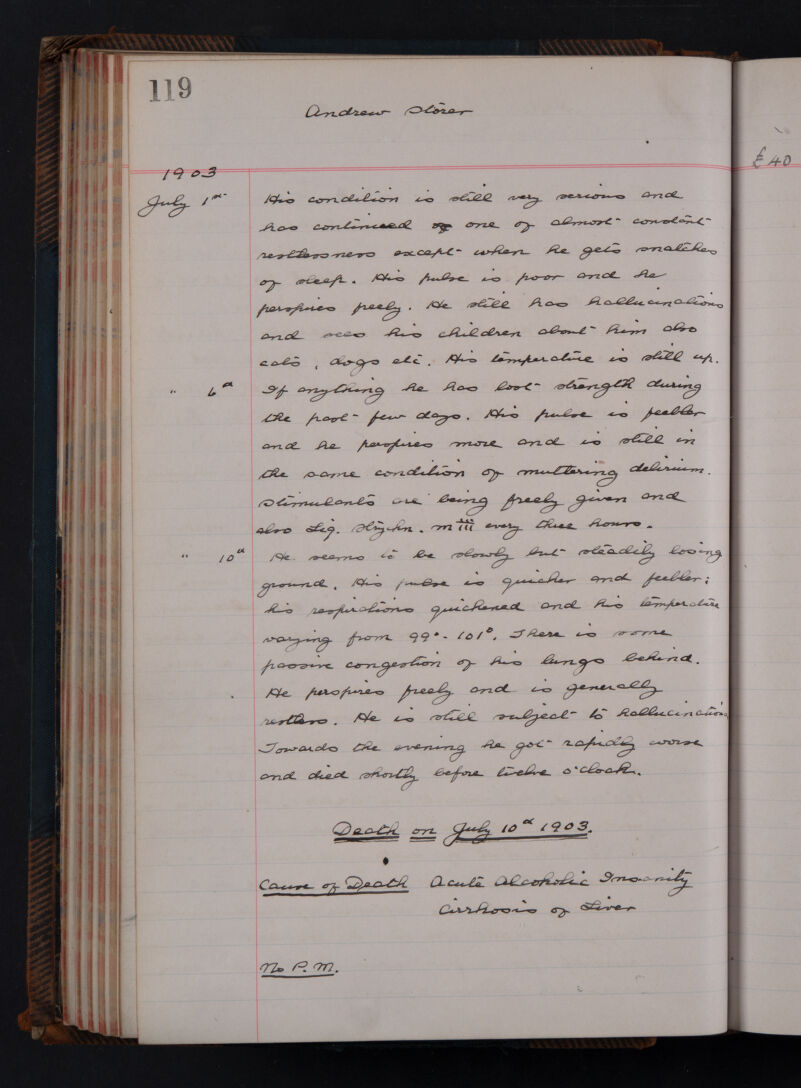 119
Andrew Storer
£40
1903
July 1st His condition is still very serious and
has continued one of almost constant
restlessness except when he gets snatches
of sleep. His pulse is poor and he
perspires freely. He still has hallucinations
and sees his children about him also
cats, dogs etc. His temperature is still up.
" 6th If anything he has lost strength during
the past few days. His pulse is feebler
and he perspires more and is still in
the same condition of muttering delirium.
Stimulants are being freely given and
also Liq. Strychn. m iii every three hours.
" 10th He seems to be slowly but steadily losing
ground. His pulse is quicker and feebler;
his respirations quickened and his temperature
varying from 99°-101°. There is some
passive congestion of his lungs behind.
He perspires freely and is generally
restless. He is still subject to hallucinations
Towards the evening he got rapidly worse
and died shortly before twelve o'clock.
Death on July 10th 1903.
Cause of Death Acute Alcoholic Insanity
Cirrhosis of Liver
No P.M.